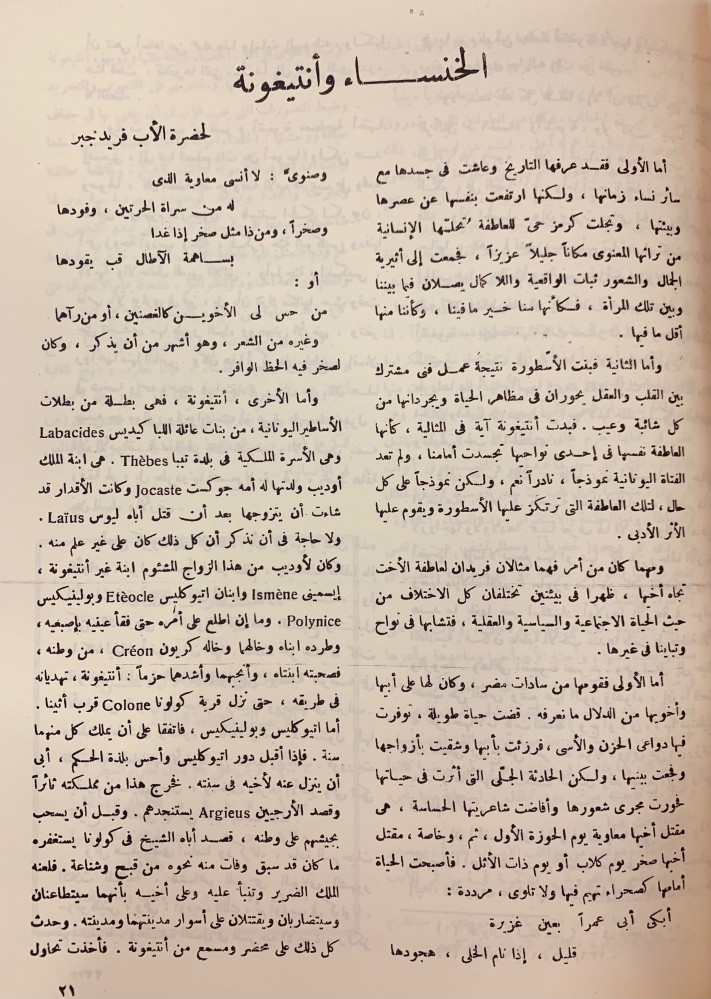 الخنساء وأنتيغونة
لحضرة الأب فريد جبر
أما الأولى فقد عرفها التاريخ وعاشت فى جسدها مع
سائر نساء زمانها ، ولكنها ارتفعت بنفسها عن عصرها
وبيئتها ، وتجلت كرمز حىّ للعاطفة تُحلّها الإنسانية
من تراثها المعنوى مكاناً جليلاً عزيزاً ، فجمعت إلى أثيرية
الجمال والشعور ثبات الواقعية واللا كمال يصلان فيما بيننا
وبين تلك المرأة ، فكأنها منا خير مافينا ، وكأننا منها
أقل ما فيها .
وأما الثانية فبنت الأسطورة نتيجةُ عمل فنى مشترك
بين القلب والعقل يحوران فى مظاهر الحياة ويجردانها من
كل شائبة وعيب . فبدت أنتيغونة آية فى المثالية ، كأنها
العاطفة نفسها فى إحدى نواحيها تجسدت أمامنا ، ولم تعد
الفتاة اليونانية نموذجاً ، نادراً نعم ، ولكن نموذجاً على كل
حال ، لتلك العاطفة التى ترتكز عليها الأسطورة ويقوم عليها
الأثر الأدبى .
ومهما كان من أمر فهما مثالان فريدان لعاطفة الأخت
تجاه أخيها ، ظهرا فى بيئتين تختلفان كل الاختلاف من
حيث الحياة الاجتماعية والسياسية والعقلية ، فتشابها فى نواح
وتباينا فى غيرها .
أما الأولى فقومها من سادات مضر ، وكان لها على أبيها
وأخويها من الدلال ما نعرفه . قضت حياة طويلة ، توفرت
فيها دواعى الحزن والأسى ، فرزئت بأبيها وشقيت بأزواجها
وفجعت ببنيها ، ولكن الحادثة الجلّى التى أثرت فى حياتها
فحورت مجرى شعورها وأفاضت شاعريتها الحساسة ، هى
مقتل أخيها معاوية يوم الحوزة الأول ، ثم ، وخاصة ، مقتل
أخيها صخر يوم كلاب أو يوم ذات الأثل . فأصبحت الحياة
أمامها كصحراء تهيم فيها ولا تلوى ، مرددة :
أبكى أبى عمراً بعين غزيرة
قليل ، إذا نام الخلى ، هجودها
وصنوىّ : لا أنسى معاوية الذى
له من سراة الحرتين ، وفودها
وصخراً ، ومن ذا مثل صخر إذا غدا
بساهمة الآطال قب يقودها
أو :
من حس لى الأخوين كالغصنين ، أو من رآهما
وغيره من الشعر ، وهو أشهر من أن يذكر ، وكان
لصخر فيه الحظ الوافر .
وأما الأخرى ، أنتيغونة ، فهى بطلة من بطلات
الأساطير اليونانية ، من بنات عائلة اللبا كيديس Labacides
وهى الأسرة الملكية فى بلدة تيبا Thèbes . هى ابنة الملك
أوديب ولدتها له أمه جوكست Jocaste وكانت الأقدار قد
شاءت أن يتزوجها بعد أن قتل أباه ليوس Laïus .
ولا حاجة فى أن نذكر أن كل ذلك كان على غير علم منه .
وكان لأوديب من هذا الزواج المشئوم ابنة غير أنتيغونة ،
إيسمينى Ismène وابنان اتيوكليس Etèocle وبولينيكيس
Polynice . وما إن اطلع على أمره حتى فقأ عينيه بإصبعيه ،
وطرده ابناه وخالهما وخاله كريون Créon ، من وطنه ،
فصحبته ابنتاه ، وأنجبهما وأشدهما حزماً : أنتيغونة ، تهديانه
فى طريقه ، حتى نزل قرية كولونا Colone قرب أثينا .
أما اتيوكليس وبولينيكيس ، فاتفقا على أن يملك كل منهما
سنة . فإذا أقبل دور اتيوكليس وأحس بلذة الحكم ، أبى
أن ينزل عنه لأخيه فى سنته . فخرج هذا من مملكته ثائراً
وقصد الأرجيين Argieus يستنجدهم . وقبل أن يسحب
بجيشهم على وطنه ، قصد أباه الشيخ فى كولونا يستغفره
ما كان قد سبق وفات منه نحوه من قبح وشناعة . فلعنه
الملك الضرير وتنبأ عليه وعلى أخيه بأنهما سيتطاعنان
وسيتضاربان ويقتتلان على أسوار مدينتهما ومدينته . وحدث
كل ذلك على محضر ومسمع من أنتيغونة . فأخذت تحاول
٢١